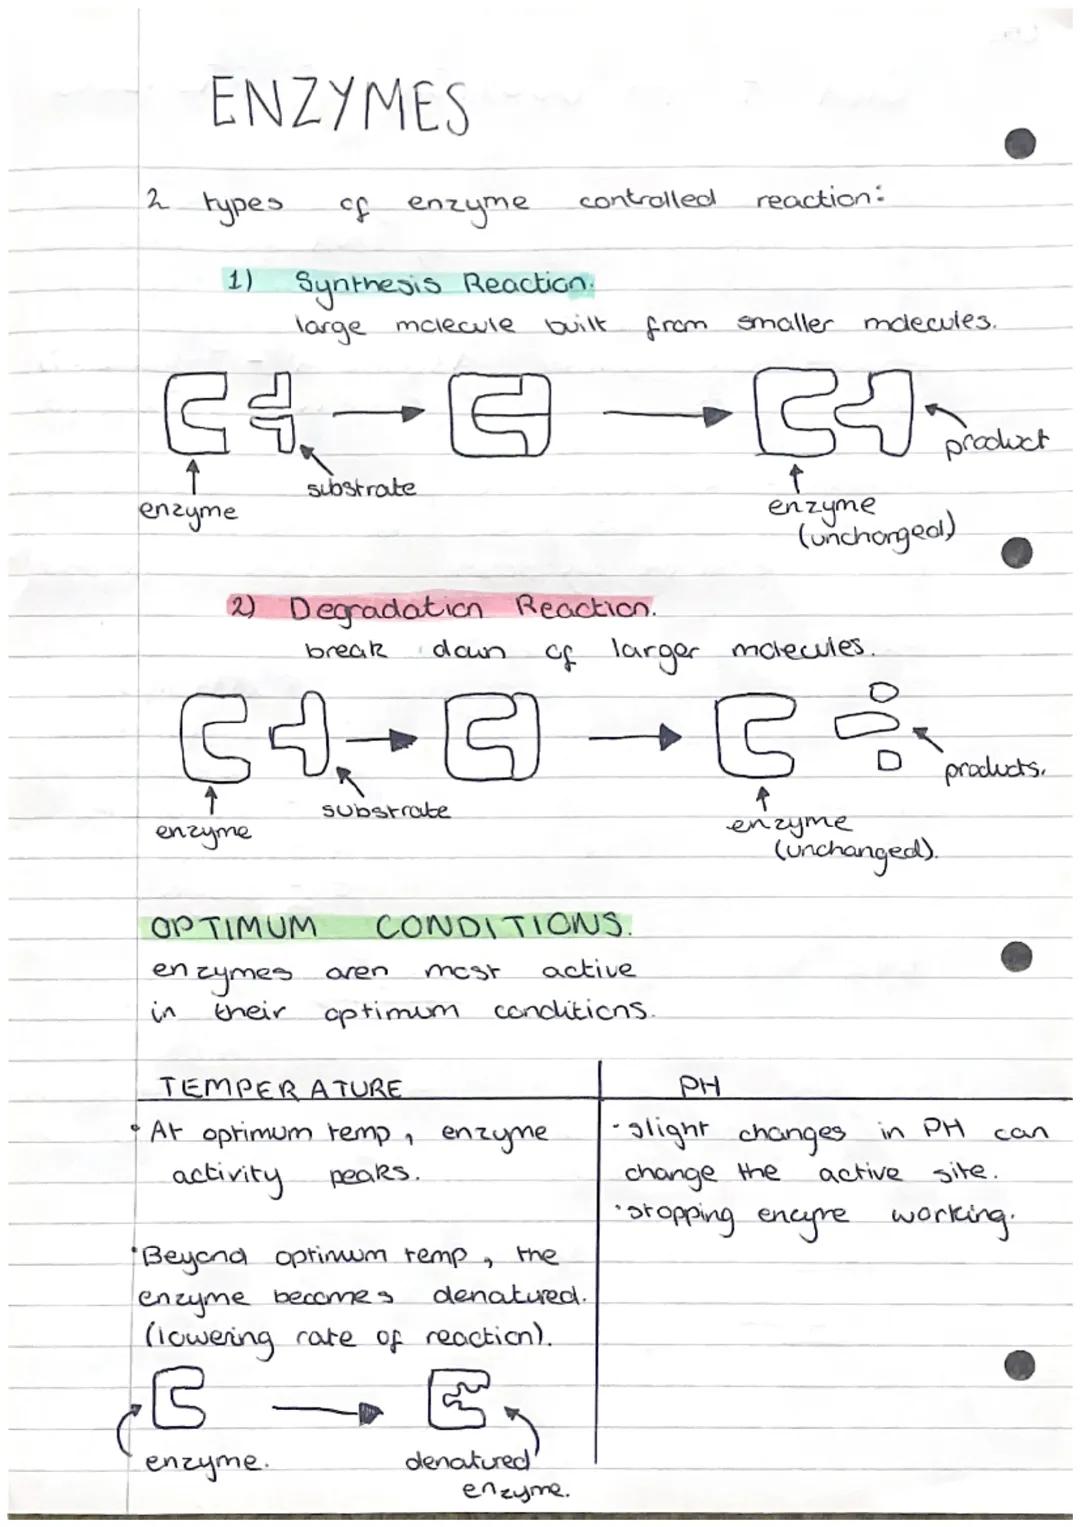 ENZYMES
2 types of enzyme controlled reaction:
1) Synthesis Reaction.
large molecule built from smaller molecules.
product
substrate
enzyme
enzyme
(unchanged)
2) Degradation Reaction.
break down of larger molecules.
products.
substrate
enzyme
enzyme
(unchanged).
OPTIMUM CONDITIONS.
enzymes aren most active
in their optimum conditions.
TEMPERATURE
• At optimum temp, enzyme
activity peaks.
• Beyond optimum temp, the
enzyme becomes denatured.
(lowering rate of reaction).
enzyme.
denatured
enzyme.
PH
• slight changes in PH can
change the active site.
• stopping enzyme working.